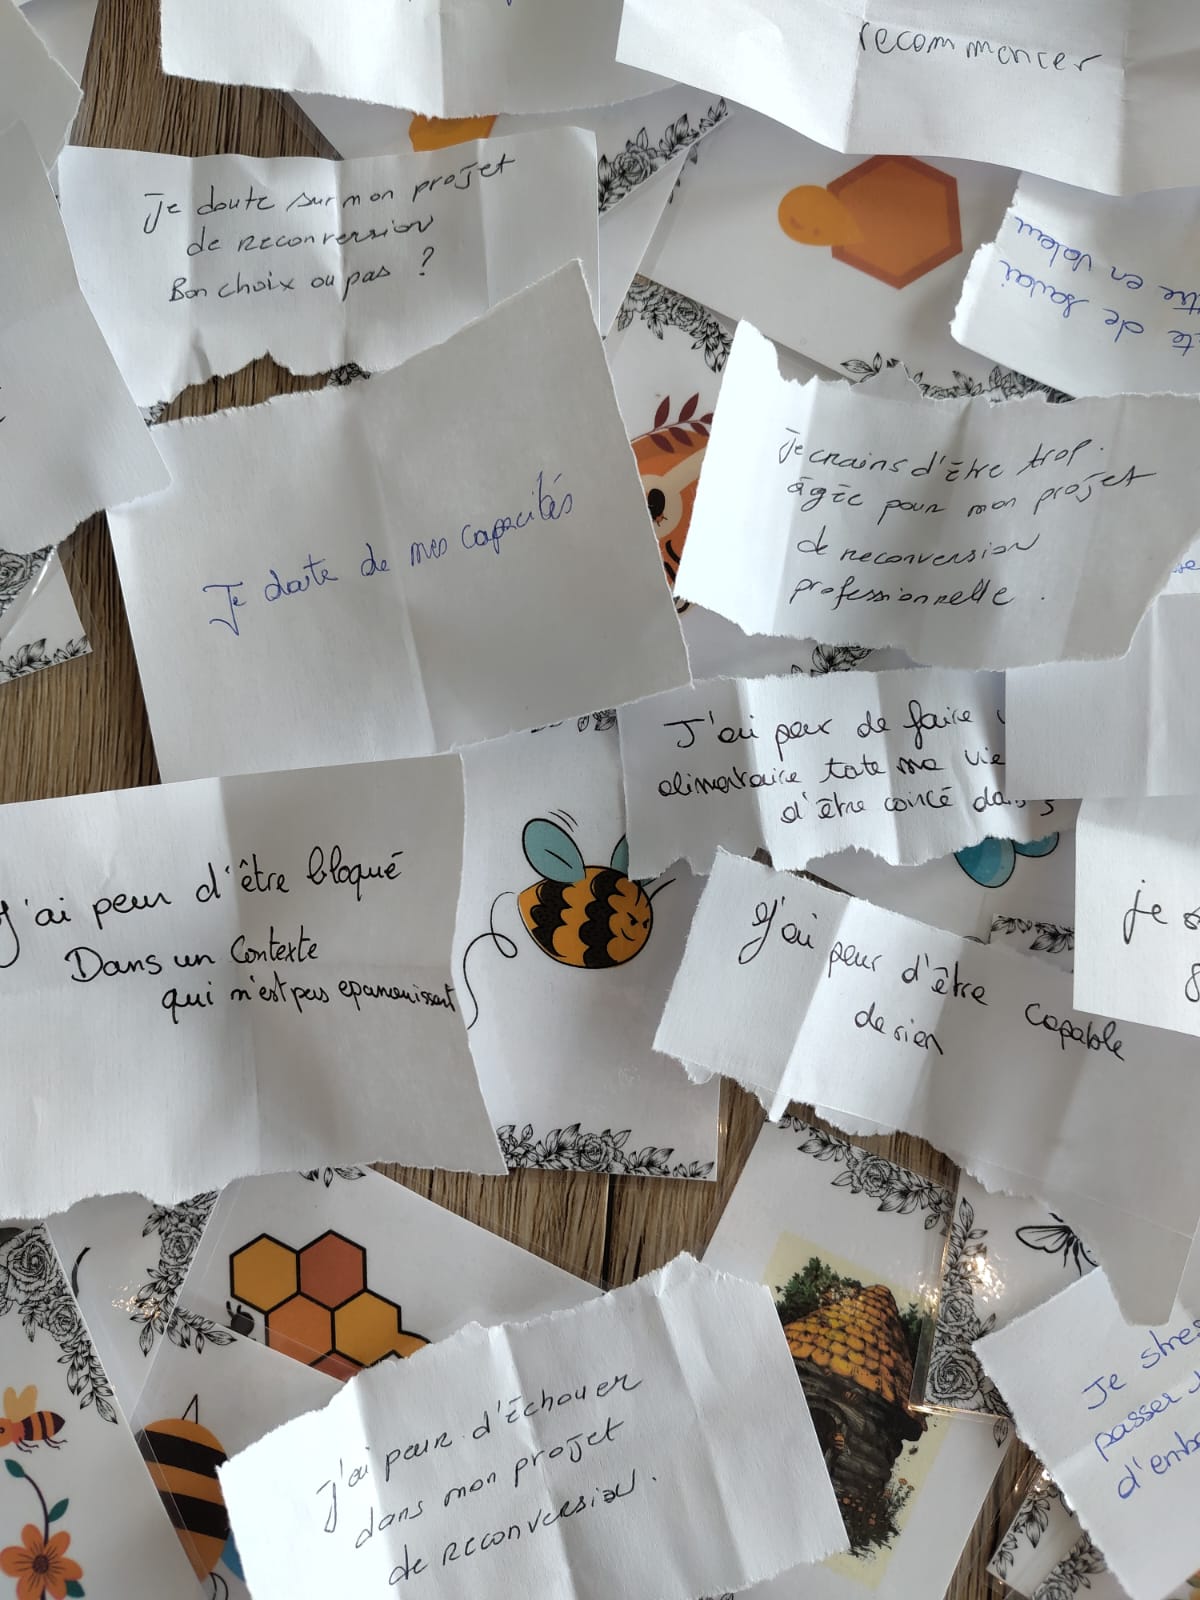 recommencer
Je doute sur mon projet
de reconversion
Bon choix ou pas ?
te de savoi
tre en valeur
Je crains d'être trop.
âgée pour mon projet
de reconversion
professionnelle.
Je doute de mes capacités
J'ai peur de faire
alimentaire toute ma vie
d'être coincé dans
J'ai peur d'être bloqué
Dans un Contexte
qui n'est pas epanouissant
je
J'ai peur d'être capable
de rien
Je stres
passer
d'emb
J'ai peur d'échouer
dans mon projet
de reconversion.